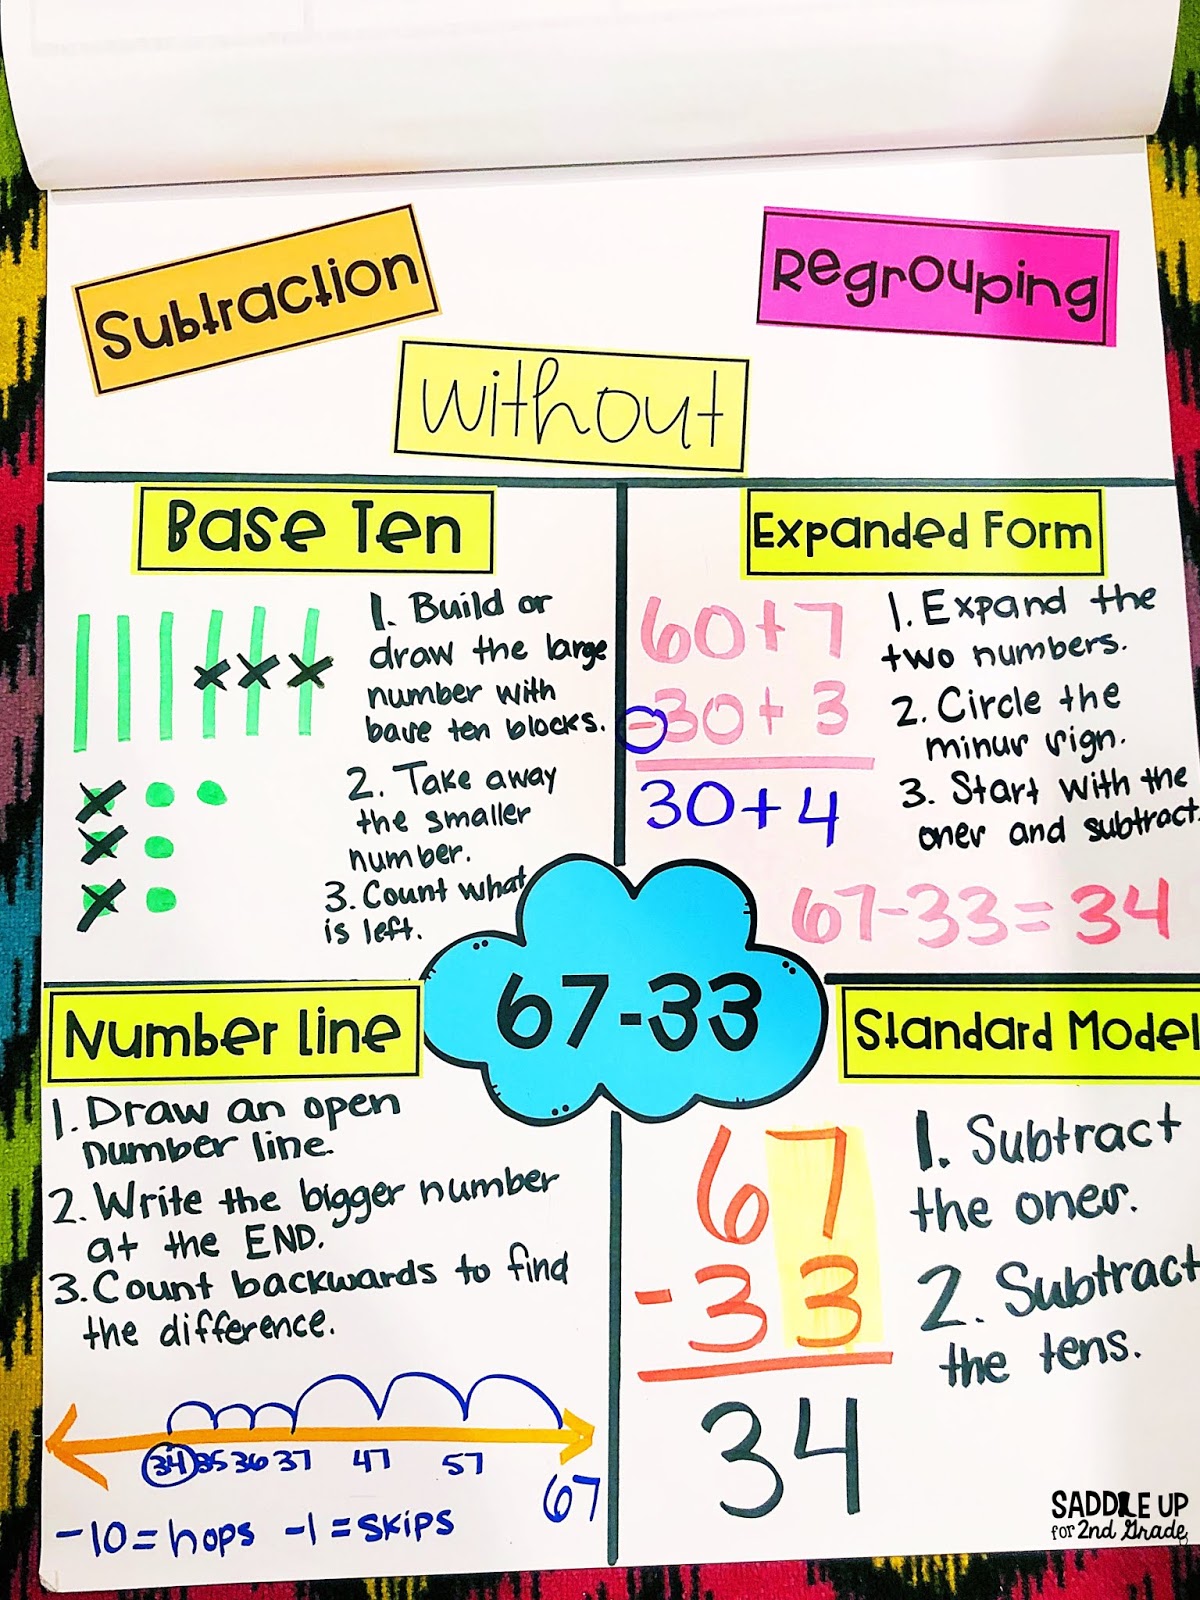 Subtraction
Regrouping
without
Base Ten
1. Build or
draw the large
number with
base ten blocks.
2. Take away
the smaller
number.
3. Count what
is left.
Expanded Form
60+7
-30+3
30+4
1. Expand the
two numbers.
2. Circle the
minus sign.
3. Start with the
ones and subtract.
67-33=34
67-33
Number line
1. Draw an open
number line.
2. Write the bigger number
at the END.
3. Count backwards to find
the difference.
34 35 36 37 47 57 67
-10=hops -1=skips
Standard Model
67
-33
34
1. Subtract
the ones.
2. Subtract
the tens.
SADDLE UP
for 2nd Grade